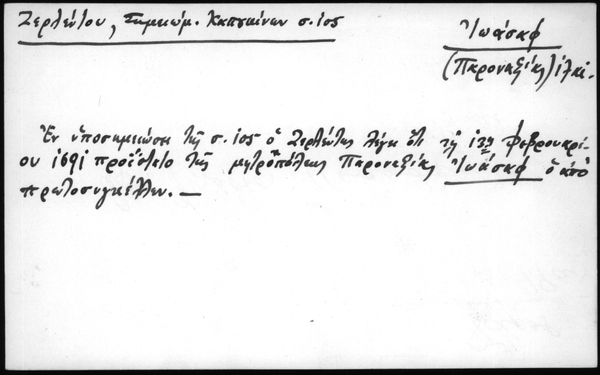 Ζερλέντου, Σημείωμ. Καπουκίνων σ. 105
Ἰωάσαφ
(Παροναξίας)
Ἐν ὑποσημειώσει τῆς σ. 105 ὁ Ζερλέντης λέγει ὅτι τῇ 12ῃ Φεβρουαρί-
ου 1691 προΐστατο τῆς μητροπόλεως Παροναξίας Ἰωάσαφ ὁ ἀπὸ
πρωτοσυγκέλλων. —